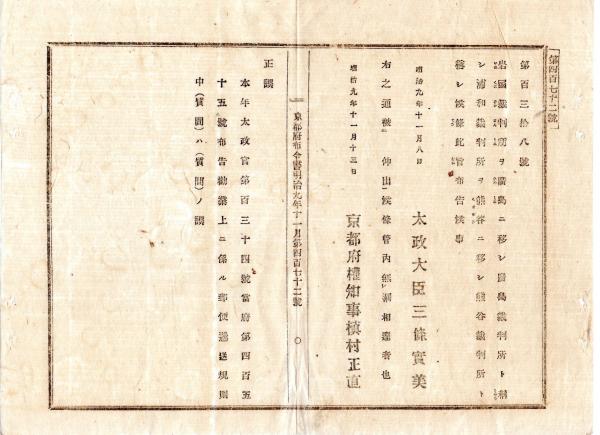 第四百七十二號
第百三拾八號
岩國裁判所ヲ廣島ニ移シ廣島裁判所ト稱
シ浦和裁判所ヲ熊谷ニ移シ熊谷裁判所ト
稱シ候條此旨布告候事
明治九年十一月八日
太政大臣三條實美
右之通被仰出候條管内無洩相達者也
明治九年十一月十三日
京都府權知事槇村正直
京都府布令書明治九年十一月第四百七十二號
正誤
本年太政官第百三十四號當府第四百五
十五號布告勸業上ニ係ル郵便遞送規則
中(質問)ハ(質問)ノ誤